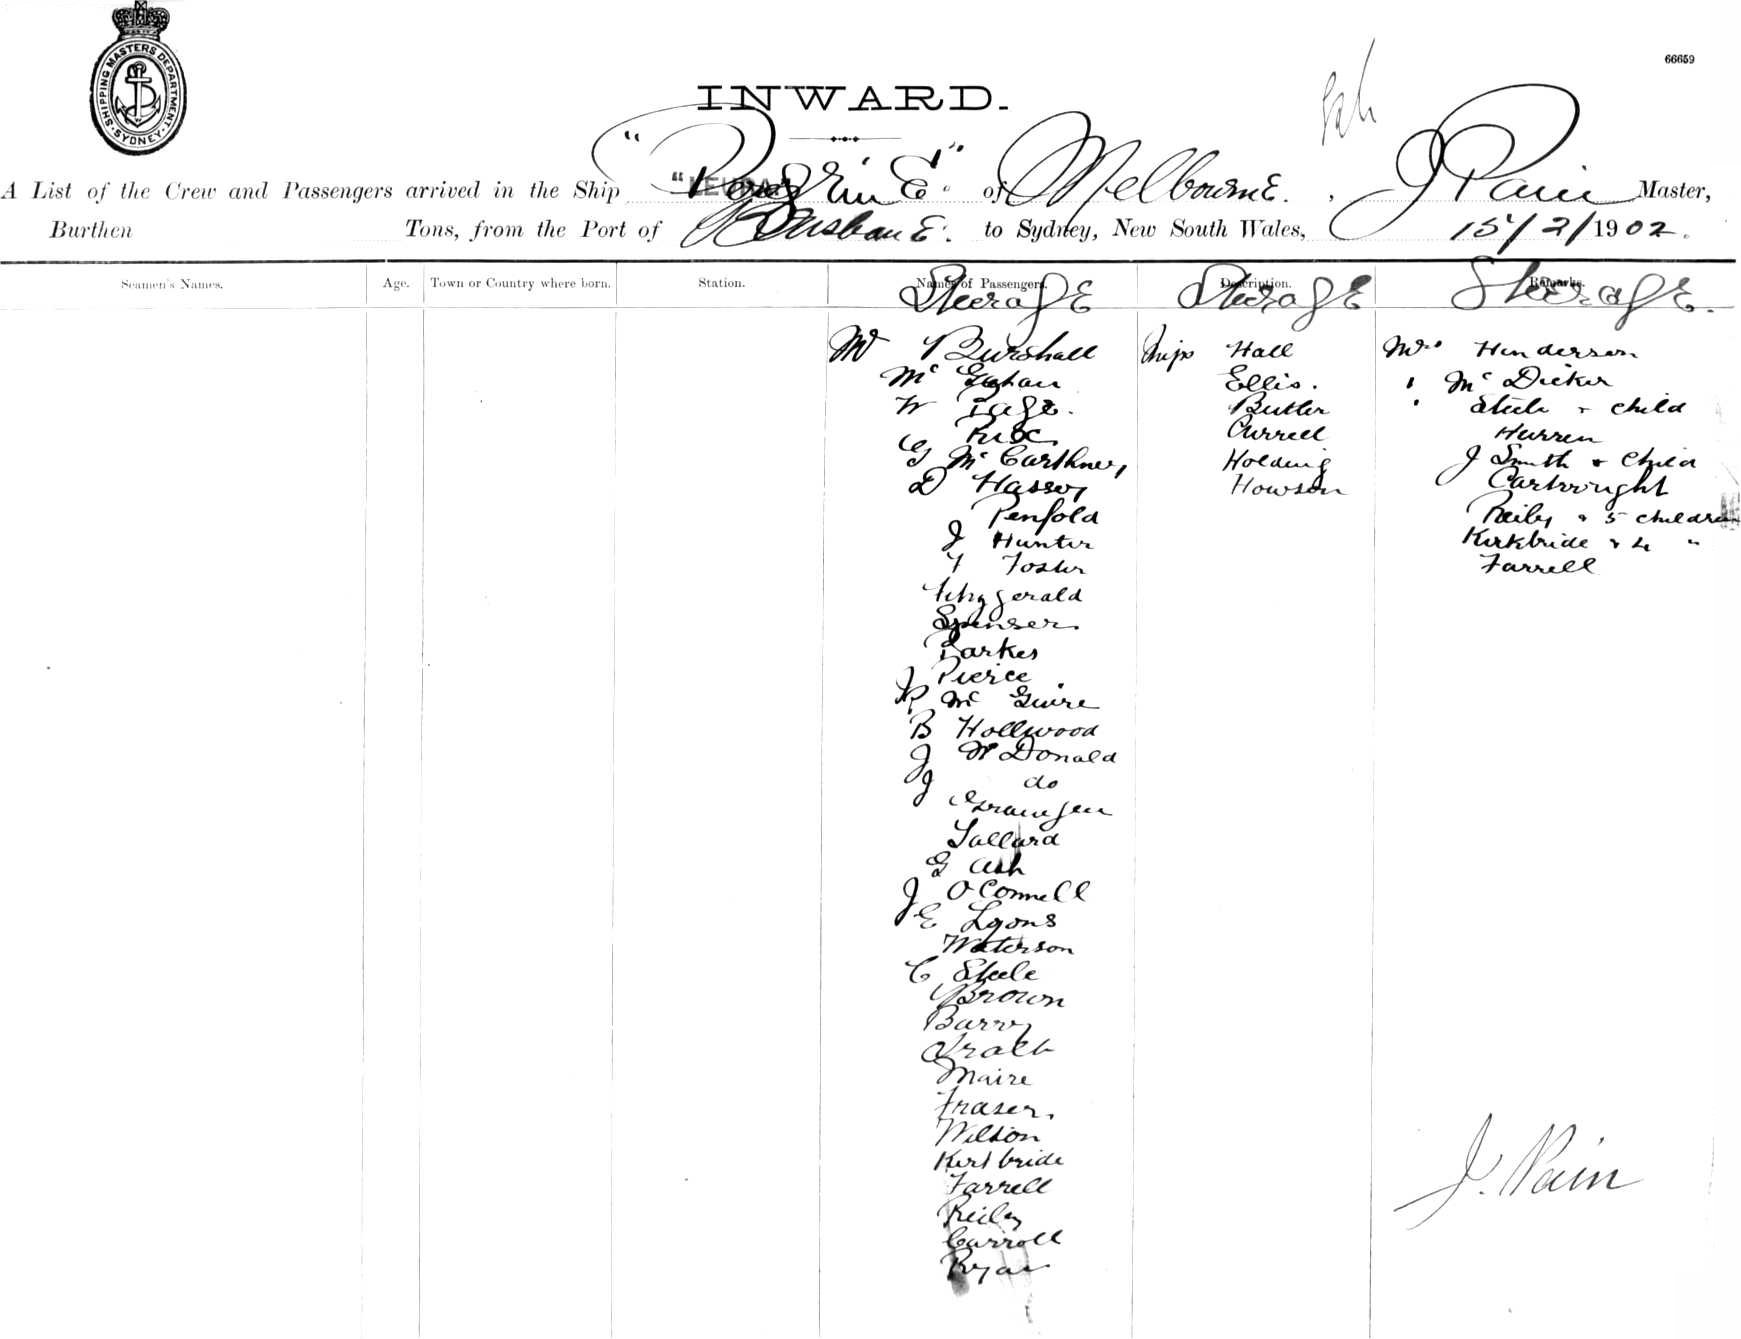 SHIPPING MASTERS DEPARTMENT. SYDNEY
66659
INWARD.
A List of the Crew and Passengers arrived in the Ship "PeregrinE" of MelbournE. , J Pain Master,
Burthen Tons, from the Port of BrisbanE. to Sydney, New South Wales, 15/2/1902.
Seamen's Names. Age. Town or Country where born. Station. Names of Passengers. Description. Remarks.
SteeragE SteeragE SteeragE.
Mr Burshall
Mc Gahan
W Page.
G McCarthney
D Hassey
Penfold
J Hunter
F Foster
Fitzgerald
Spenser
Parkes
J Pierce
P Mc Guire
B Hollwood
J McDonald
J do
Tallard
G Ash
J O'Connell
E Lyons
Waterson
C Steele
Brown
Barry
Maire
Fraser.
Wilson
Kirkbride
Farrell
Reily
Carroll
Ryan
Miss Hall
Ellis.
Butler
Currell
Holding
Howson
Mrs Henderson
" Mc Dicker
" Steele + child
Herren
J Smith + child
Cartwright
Reily + 5 children
Kirkbride + 4 "
Farrell
J. Pain